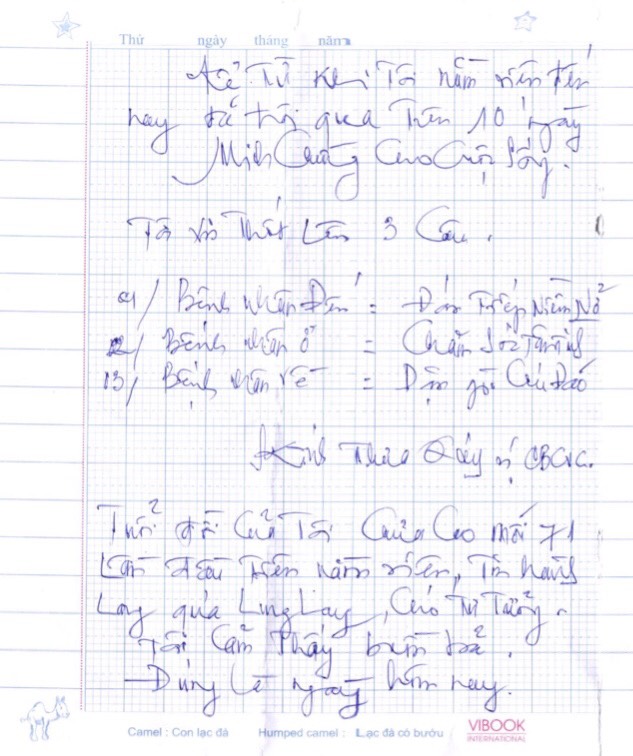 Thứ ngày tháng năm
Kể Từ Khi Tôi nằm viện đến
nay đã trôi qua Trên 10 ngày
Minh Chứng Cho Cuộc Sống.
Tôi Thốt Lên 3 Câu.
01/ Bệnh nhân Đến = Đón Tiếp Niềm Nở
2/ Bệnh nhân ở = Chăm Sóc Tận Tình
03/ Bệnh nhân Về = Dặn dò Chu Đáo
Kính Thưa Quý vị CBCNC.
Tuổi đời Của Tôi Chưa Cao mới 71
Lần đầu Tiên nằm viện, Tôi
Long qua Lung Lay, Tư Tưởng.
Tôi Cảm Thấy buồn bã.
Đúng Lẽ ngày hôm nay.
Camel : Con lạc đà Humped camel : Lạc đà có bướu VIBOOK
INTERNATIONAL